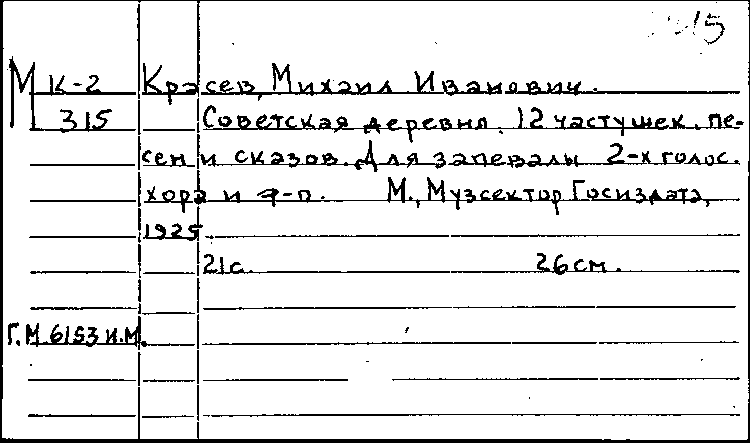 М К-2 Красев, Михаил Иванович.
315 Советская деревня. 12 частушек, пе-
сен и сказов. Для запевалы 2-х голос.
хора и ф-п. М., Музсектор Госиздата,
1925.
21с. 26см.
Г.М 6153 и.м.